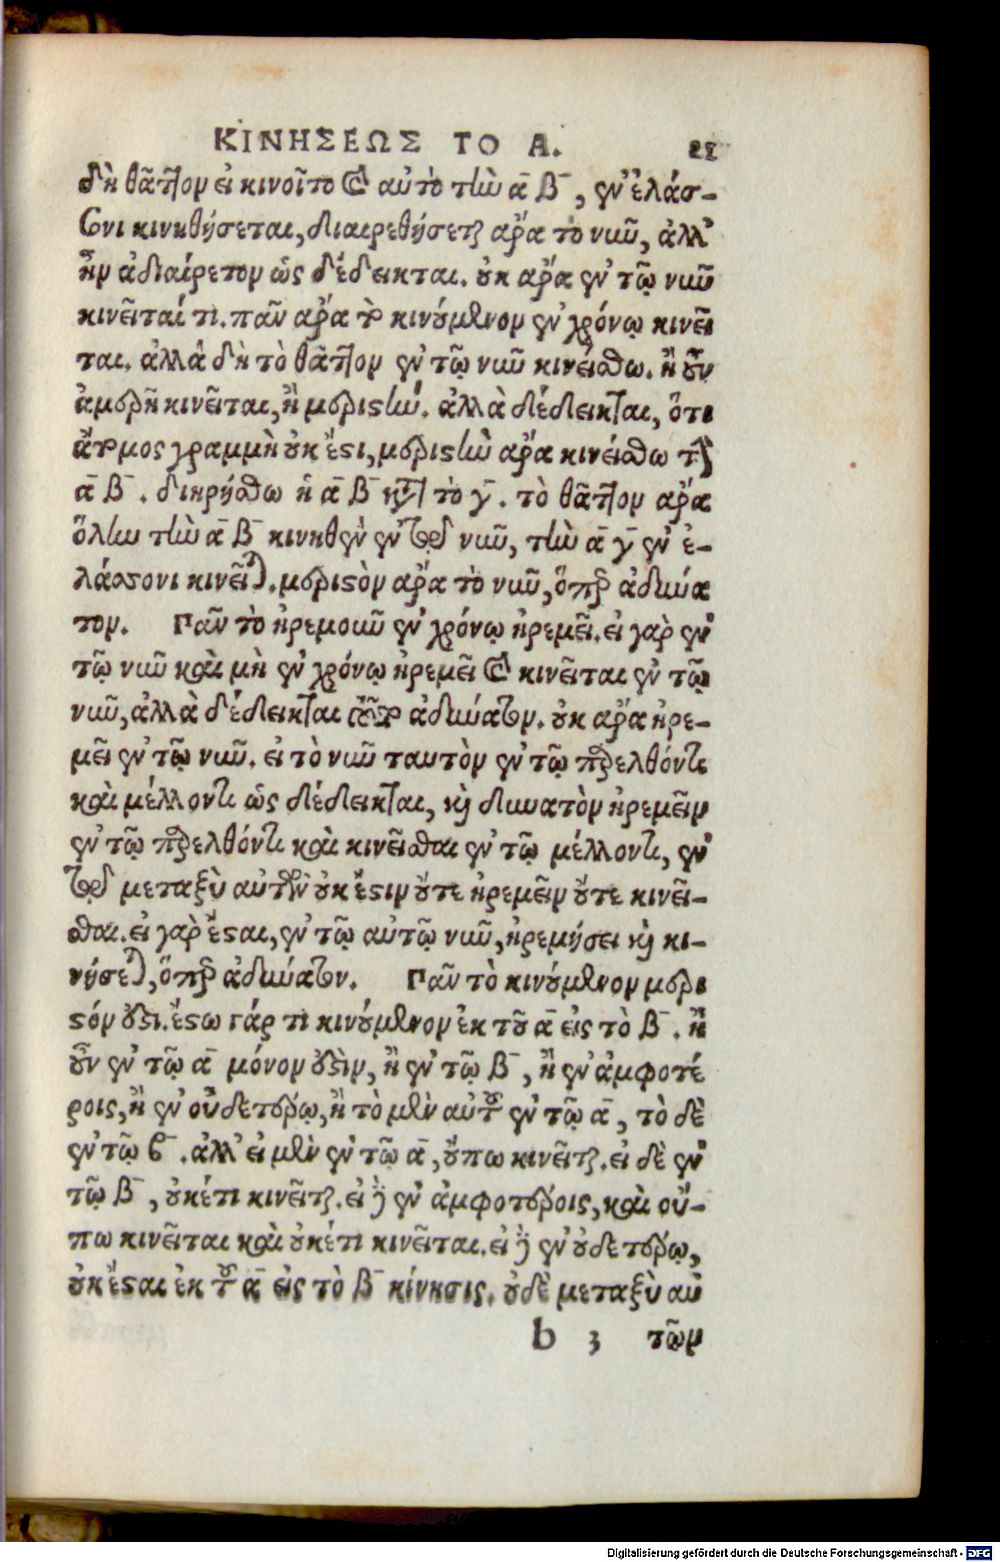 ΚΙΝΗΣΕΩΣ ΤΟ Α. 21
δὴ θᾶττον εἰ κινοῖτο καὶ αὐτὸ τὴν ᾱ β̄, ἐν ἐλάσ-
σονι κινηθήσεται, διαιρεθήσεται ἄρα τὸ νῦν, ἀλλ’
ἦν ἀδιαίρετον ὡς δέδεικται. οὐκ ἄρα ἐν τῷ νῦν
κινεῖταί τι. πᾶν ἄρα τὸ κινούμενον ἐν χρόνῳ κινεῖ
ται. ἀλλὰ δὴ τὸ θᾶττον ἐν τῷ νῦν κινείσθω. ἢ οὖν
ἀμερῆ κινεῖται, ἢ μεριστήν. ἀλλὰ δέδεικται, ὅτι
ἄτομος γραμμὴ οὐκ ἔστι, μεριστὴν ἄρα κινείσθω τὴν
ᾱ β̄. διηρήσθω ἡ ᾱ β̄ κατὰ τὸ γ̄. τὸ θᾶττον ἄρα
ὅλην τὴν ᾱ β̄ κινηθὲν ἐν τῷ νῦν, τὴν ᾱ γ̄ ἐν ἐ-
λάσσονι κινεῖται. μεριστὸν ἄρα τὸ νῦν, ὅπερ ἀδύνα
τον. Πᾶν τὸ ἠρεμοῦν ἐν χρόνῳ ἠρεμεῖ. εἰ γὰρ ἐν
τῷ νῦν καὶ μὴ ἐν χρόνῳ ἠρεμεῖ καὶ κινεῖται ἐν τῷ
νῦν, ἀλλὰ δέδεικται τοῦτο ἀδύνατον. οὐκ ἄρα ἠρε-
μεῖ ἐν τῷ νῦν. εἰ τὸ νῦν ταυτὸν ἐν τῷ παρελθόντι
καὶ μέλλοντι ὡς δέδεικται, καὶ δυνατὸν ἠρεμεῖν
ἐν τῷ παρελθόντι καὶ κινεῖσθαι ἐν τῷ μέλλοντι, ἐν
τῷ μεταξὺ αὐτῶν οὐκ ἔστιν οὔτε ἠρεμεῖν οὔτε κινεῖ-
σθαι. εἰ γὰρ ἔσται, ἐν τῷ αὐτῷ νῦν, ἠρεμήσει καὶ κι-
νήσεται, ὅπερ ἀδύνατον. Πᾶν τὸ κινούμενον μερι
στόν ἐστι. ἔστω γάρ τι κινούμενον ἐκ τοῦ ᾱ εἰς τὸ β̄. ἢ
οὖν ἐν τῷ ᾱ μόνον ἐστὶν, ἢ ἐν τῷ β̄, ἢ ἐν ἀμφοτέ
ροις, ἢ ἐν οὐδετέρῳ, ἢ τὸ μὲν αὐτοῦ ἐν τῷ ᾱ, τὸ δὲ
ἐν τῷ β̄. ἀλλ’ εἰ μὲν ἐν τῷ ᾱ, οὔπω κινεῖται. εἰ δὲ ἐν
τῷ β̄, οὐκέτι κινεῖται. εἰ δὲ ἐν ἀμφοτέροις, καὶ οὔ-
πω κινεῖται καὶ οὐκέτι κινεῖται. εἰ δὲ ἐν οὐδετέρῳ,
οὐκ ἔσται ἐκ τοῦ ᾱ εἰς τὸ β̄ κίνησις. οὐδὲ μεταξὺ αὐ
b 3 τῶν
Digitalisierung gefördert durch die Deutsche Forschungsgemeinschaft - DFG